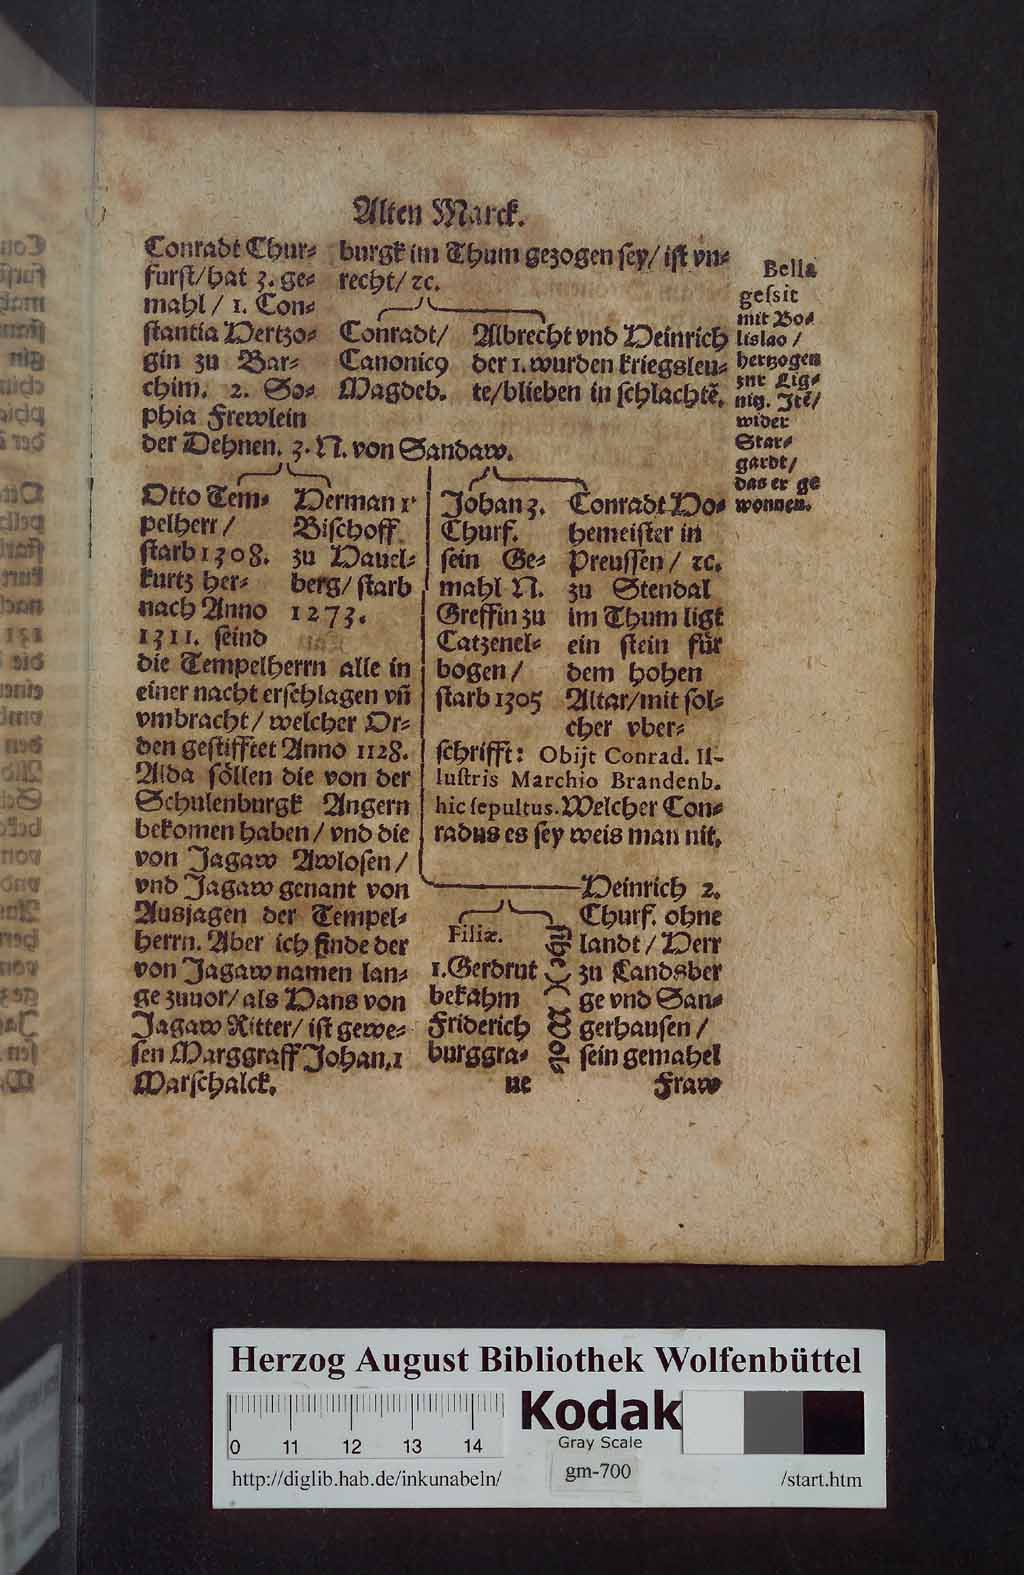 Alten Marck.
Conradt Chur⸗
furst/hat 3. ge⸗
mahl / 1. Con⸗
stantia Hertzo⸗
gin zu Bar⸗
chim. 2. So⸗
phia Frewlein
der Dehnen. 3. N. von Sandaw.
burgk im Thum gezogen sey/ ist vn⸗
recht/ ꝛc.
Conradt/
Canonicꝰ
Magdeb.
Albrecht vnd Heinrich
der 1. wurden kriegsleu⸗
te/blieben in schlachtẽ.
Bella
gessit
mit Bo⸗
lislao /
hertzogen
zur Lig⸗
nitz. Itẽ/
wider
Star⸗
gardt/
das er ge
wonnen.
Otto Tem⸗
pelherr /
starb 1308.
kurtz her⸗
nach Anno
1311. seind
die Tempelherrn alle in
einer nacht erschlagen vñ
vmbracht / welcher Or⸗
den gestifftet Anno 1128.
Alda söllen die von der
Schulenburgk Angern
bekomen haben / vnd die
von Jagaw Awlosen /
vnd Jagaw genant von
Ausjagen der Tempel⸗
herrn. Aber ich finde der
von Jagaw namen lan⸗
ge zuuor/ als Hans von
Jagaw Ritter/ ist gewe⸗
sen Marggraff Johan.1
Marschalck.
Herman 1
Bischoff
zu Hauel⸗
berg/ starb
1273.
Johan 3.
Churf.
sein Ge⸗
mahl N.
Greffin zu
Catzenel⸗
bogen /
starb 1305
Conradt Ho⸗
hemeister in
Preussen / ꝛc.
zu Stendal
im Thum ligt
ein stein für
dem hohen
Altar/mit sol⸗
cher vber⸗
schrifft: Obijt Conrad. Il-
lustris Marchio Brandenb.
hic sepultus. Welcher Con⸗
radus es sey weis man nit.
Heinrich 2.
Churf. ohne
landt / Herr
zu Landsber
ge vnd San⸗
gerhausen /
sein gemahel
Fraw
Filiæ.
1.Gerdrut
bekahm
Friderich
burggra⸗
ue
Herzog August Bibliothek Wolfenbüttel
0 11 12 13 14
Kodak
Gray Scale
http://diglib.hab.de/inkunabeln/
gm-700
/start.htm